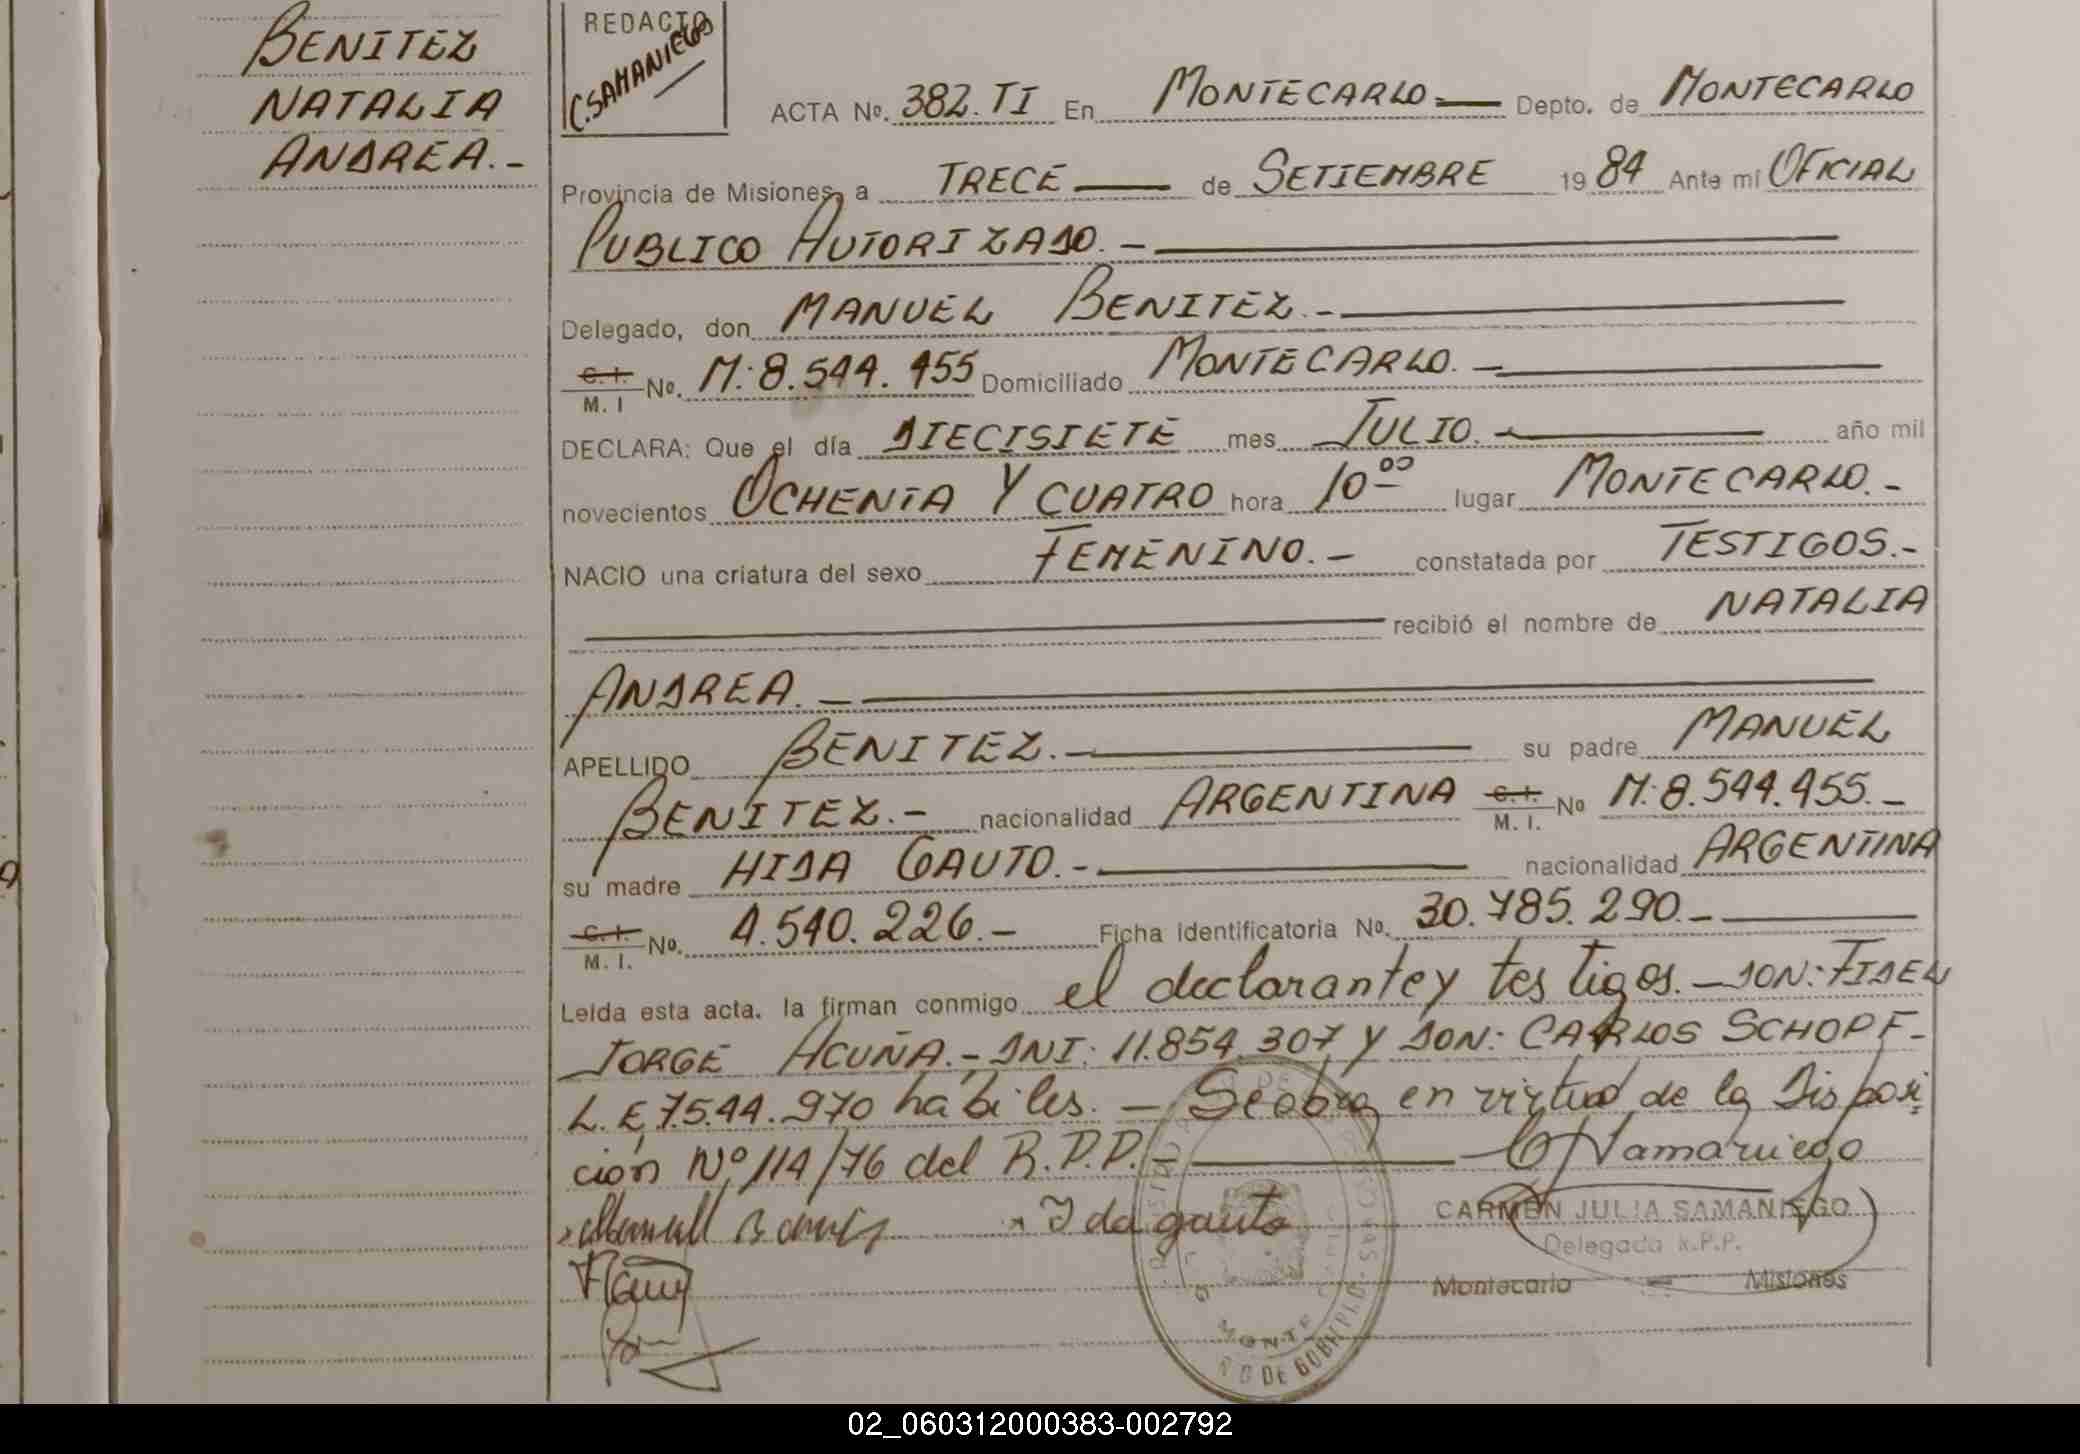 BENITEZ
NATALIA
ANDREA.-
REDACTO
C.SAMANIEGO
ACTA No. 382.TI En MONTECARLO Depto. de MONTECARLO
Provincia de Misiones, a TRECE de SETIEMBRE 1984 Ante mí OFICIAL
PUBLICO AUTORIZADO.-
Delegado, don MANUEL BENITEZ.-
C.I. M.I No. M:8.544.455 Domiciliado MONTECARLO.-
DECLARA: Que el día DIECISIETE mes JULIO.- año mil
novecientos OCHENTA Y CUATRO hora 10 00 lugar MONTECARLO.-
NACIO una criatura del sexo FEMENINO.- constatada por TESTIGOS.-
recibió el nombre de NATALIA
ANDREA.-
APELLIDO BENITEZ.- su padre MANUEL
BENITEZ.- nacionalidad ARGENTINA C.I. M.I. No M:8.544.455.-
su madre HIDA GAUTO.- nacionalidad ARGENTINA
C.I. M.I. No. 4.540.226.- Ficha identificatoria No. 30.785.290.-
Leída esta acta, la firman conmigo el declarante y testigos.- DON: FIDEL
JORGE ACUÑA.- DNI: 11.854.307 Y DON: CARLOS SCHOPF-
L.E 7.544.970 hábiles.- Se obra en virtud de la Disposi
ción Nº 114/76 del R.P.P.- CJSamaniego
Manuel Benitez Ida gauto
CARMEN JULIA SAMANIEGO
Delegada R.P.P.
Montecarlo - Misiones
MONTE
DE GOB
02_060312000383-002792